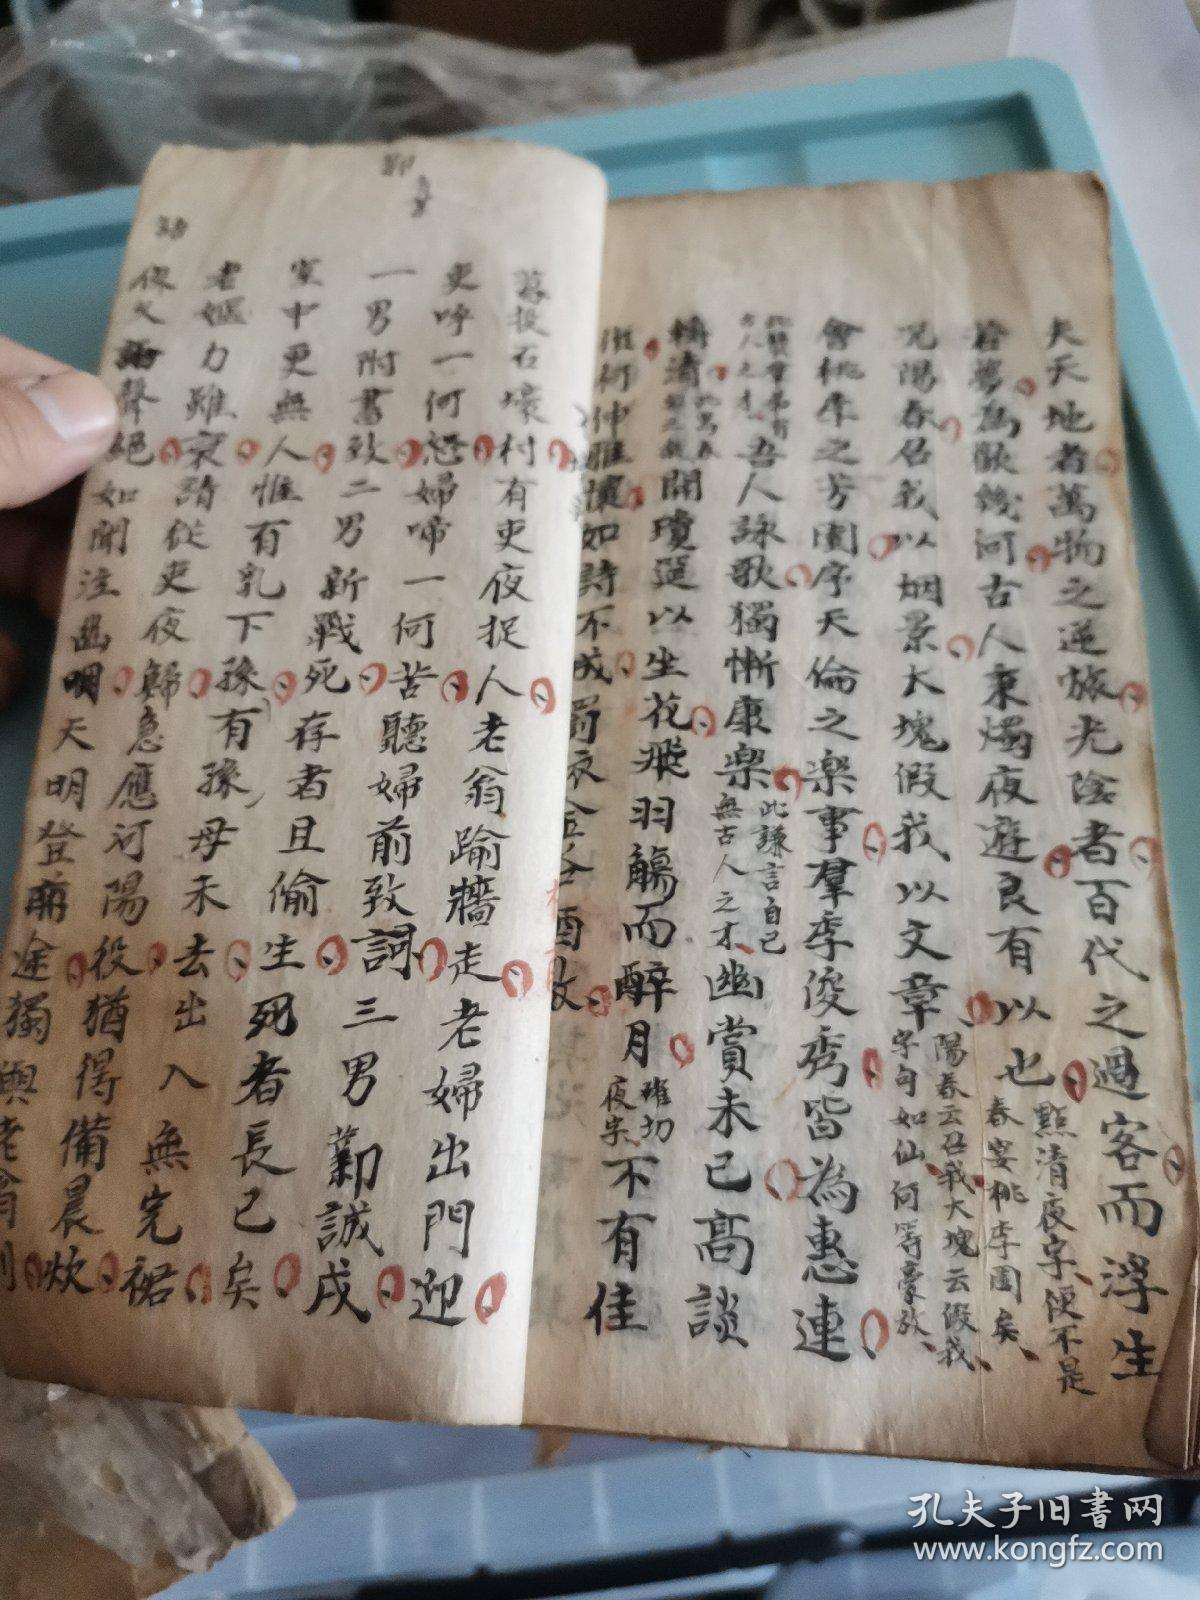 夫天地者萬物之逆旅光陰者百代之過客而浮生
若夢為歡幾何古人秉燭夜遊良有以也
點清夜字便不是
春宴桃李園矣
況陽春召我以烟景大塊假我以文章
陽春云召我大塊云假我
字句如仙何等豪放
會桃李之芳園序天倫之楽事羣季俊秀皆為惠連
吾人詠歌獨慚康楽
此謙言自己
無古人之才
幽賞未已髙談
轉清
開瓊筵以坐花飛羽觴而醉月
夜字
不有佳
作何伸雅懷如詩不成罰依金谷酒数
暮投石壕村有吏夜捉人老翁踰牆走老婦出門迎
吏呼一何怒婦啼一何苦聽婦前致詞三男鄴城戍
一男附書致二男新戰死存者且偷生死者長已矣
室中更無人惟有乳下孫有孫母未去出入無完裙
老嫗力雖衰請從吏夜歸急應河陽役猶得備晨炊
夜久語聲絕如聞泣幽咽天明登前途獨與老翁別
孔夫子旧書网
www.kongfz.com